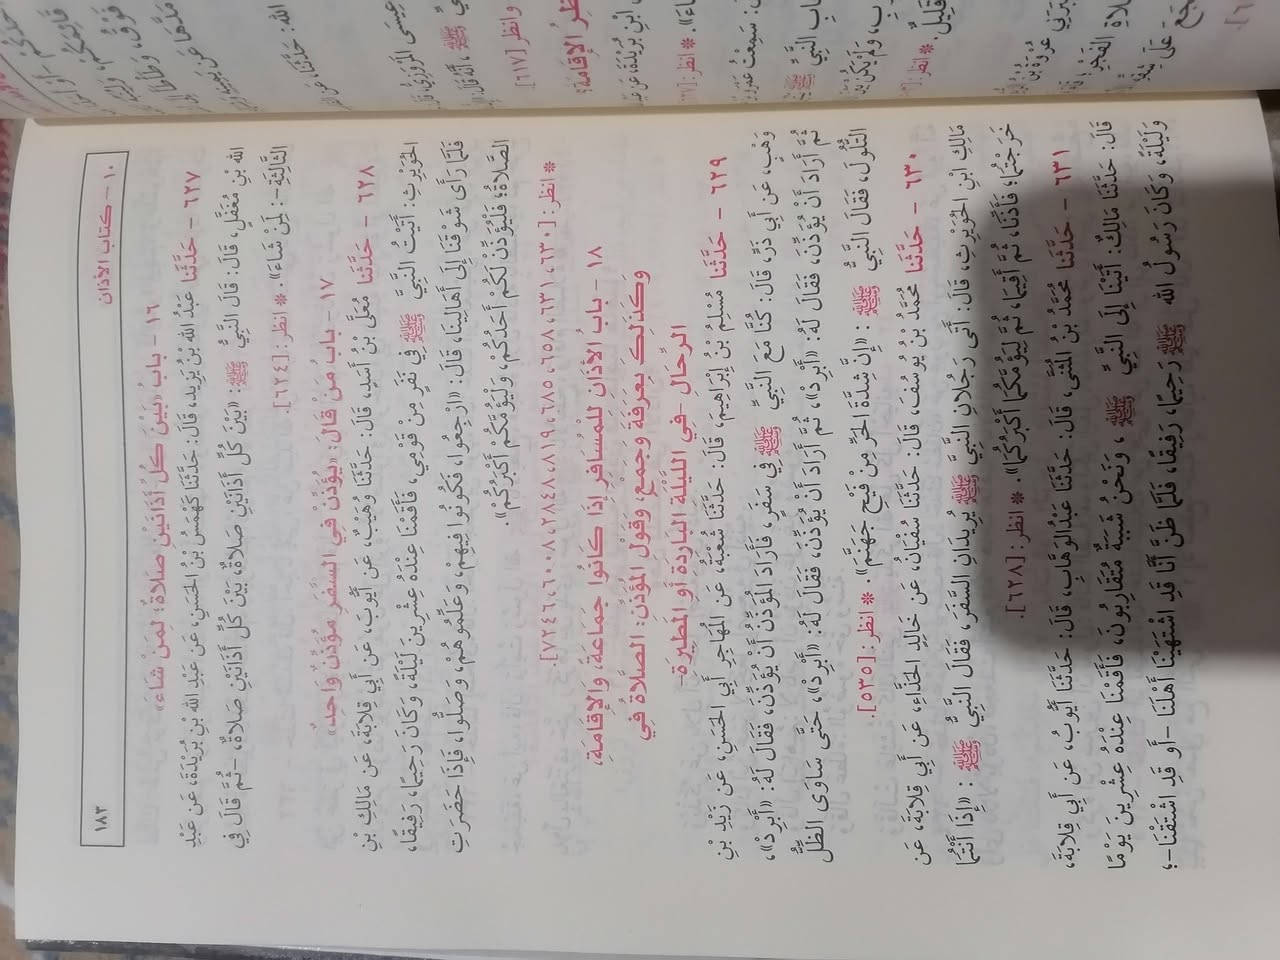 ١٠ - كتاب الأذان
١٨٣
١٦ - بابٌ «بَيْنَ كُلِّ أَذَانَيْنِ صَلاةٌ؛ لِمَنْ شَاءَ»
٦٢٧ - حَدَّثَنَا عَبْدُ الله بْنُ يَزِيدَ، قَالَ: حَدَّثَنَا كَهْمَسُ بْنُ الحَسَنِ، عَن عَبْدِ الله بْنِ بُرَيْدَةَ، عَن عَبْدِ
الله بْنِ مُغَفَّلٍ، قَالَ: قَالَ النَّبِيُّ ﷺ: «بَيْنَ كُلِّ أَذَانَيْنِ صَلاةٌ، بَيْنَ كُلِّ أَذَانَيْنِ صَلاةٌ، -ثُمَّ قَالَ فِي
الثَّالِثَةِ-: لِمَنْ شَاءَ». * انظر: [٦٢٤].
١٧ - بابُ مَنْ قَالَ: لِيُؤَذِّنْ فِي السَّفَرِ مُؤَذِّنٌ وَاحِدٌ
٦٢٨ - حَدَّثَنَا مُعَلَّى بْنُ أَسَدٍ، قَالَ: حَدَّثَنَا وُهَيْبٌ، عَن أَيُّوبَ، عَن أَبِي قِلابَةَ، عَن مَالِكِ بْنِ
الحُوَيْرِثِ: أَتَيْتُ النَّبِيَّ ﷺ فِي نَفَرٍ مِنْ قَوْمِي، فَأَقَمْنَا عِنْدَهُ عِشْرِينَ لَيْلَةً، وَكَانَ رَحِيمًا، رَفِيقًا،
فَلَمَّا رَأَى شَوْقَنَا إِلَى أَهَالِينَا، قَالَ: «ارْجِعُوا، فَكُونُوا فِيهِمْ، وَعَلِّمُوهُمْ، وَصَلُّوا، فَإِذَا حَضَرَتِ
الصَّلاةُ؛ فَلْيُؤَذِّنْ لَكُمْ أَحَدُكُمْ، وَلْيَؤُمَّكُمْ أَكْبَرُكُمْ».
* انظر: [٦٣٠، ٦٣١، ٦٥٨، ٦٨٥، ٨١٩، ٢٨٤٨، ٦٠٠٨، ٧٢٤٦].
١٨ - بابُ الأَذَانِ لِلْمُسَافِرِ إِذَا كَانُوا جَمَاعَةً، وَالإِقَامَةِ،
وَكَذَلِكَ بِعَرَفَةَ وَجَمْعٍ وَقَوْلِ المُؤَذِّنِ: الصَّلاةُ فِي
الرِّحَالِ -فِي اللَّيْلَةِ البَارِدَةِ أَوِ المَطِيرَةِ-
٦٢٩ - حَدَّثَنَا مُسْلِمُ بْنُ إِبْرَاهِيمَ، قَالَ: حَدَّثَنَا شُعْبَةُ، عَنِ المُهَاجِرِ أَبِي الحَسَنِ، عَن زَيْدِ بْنِ
وَهْبٍ، عَن أَبِي ذَرٍّ، قَالَ: كُنَّا مَعَ النَّبِيِّ ﷺ فِي سَفَرٍ، فَأَرَادَ المُؤَذِّنُ أَنْ يُؤَذِّنَ، فَقَالَ لَهُ: «أَبْرِدْ»،
ثُمَّ أَرَادَ أَنْ يُؤَذِّنَ، فَقَالَ لَهُ: «أَبْرِدْ»، ثُمَّ أَرَادَ أَنْ يُؤَذِّنَ، فَقَالَ لَهُ: «أَبْرِدْ»، حَتَّى سَاوَى الظِّلُّ
التُّلُولَ، فَقَالَ النَّبِيُّ ﷺ: «إِنَّ شِدَّةَ الحَرِّ مِنْ فَيْحِ جَهَنَّمَ». * انظر: [٥٣٥].
٦٣٠ - حَدَّثَنَا مُحَمَّدُ بْنُ يُوسُفَ، قَالَ: حَدَّثَنَا سُفْيَانُ، عَن خَالِدٍ الحَذَّاءِ، عَن أَبِي قِلابَةَ، عَن
مَالِكِ ابْنِ الحُوَيْرِثِ، قَالَ: أَتَى رَجُلانِ النَّبِيَّ ﷺ يُرِيدَانِ السَّفَرَ، فَقَالَ النَّبِيُّ ﷺ: «إِذَا أَنْتُمَا
خَرَجْتُمَا؛ فَأَذِّنَا، ثُمَّ أَقِيمَا، ثُمَّ لِيَؤُمَّكُمَا أَكْبَرُكُمَا». * انظر: [٦٢٨].
٦٣١ - حَدَّثَنَا مُحَمَّدُ بْنُ المُثَنَّى، قَالَ: حَدَّثَنَا عَبْدُالوَهَّابِ، قَالَ: حَدَّثَنَا أَيُّوبُ، عَن أَبِي قِلابَةَ،
قَالَ: حَدَّثَنَا مَالِكٌ: أَتَيْنَا إِلَى النَّبِيِّ ﷺ، وَنَحْنُ شَبَبَةٌ مُتَقَارِبُونَ، فَأَقَمْنَا عِنْدَهُ عِشْرِينَ يَوْمًا
وَلَيْلَةً، وَكَانَ رَسُولُ الله ﷺ رَحِيمًا، رَفِيقًا، فَلَمَّا ظَنَّ أَنَّا قَدِ اشْتَهَيْنَا أَهْلَنَا -أَو قَدِ اشْتَقْنَا-؛